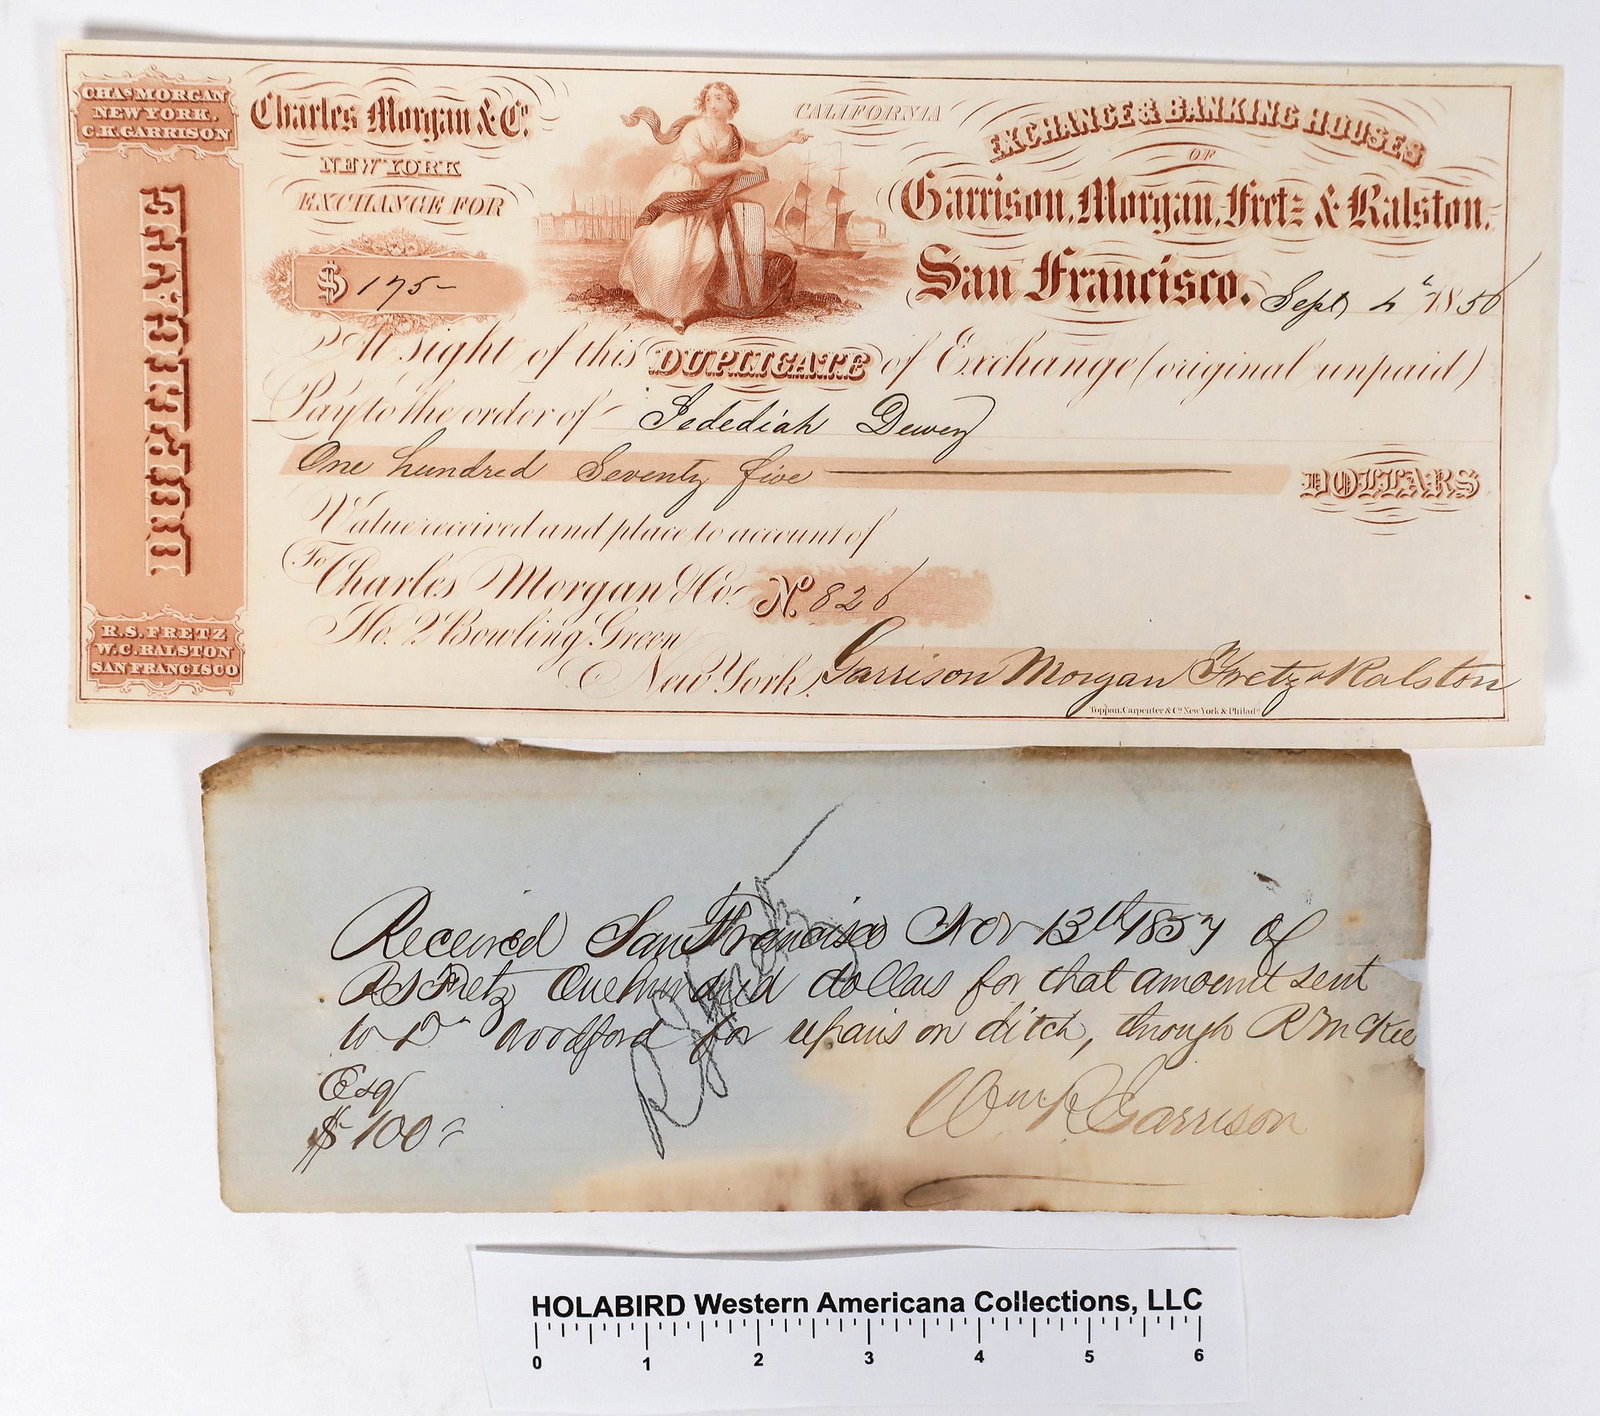 CHAS MORGAN
NEW YORK.
C.K. GARRISON
DUPLICATE
R.S. FRETZ
W.C. RALSTON
SAN FRANCISCO
Charles Morgan & Co.
NEW YORK
EXCHANGE FOR
$ 175-
CALIFORNIA
EXCHANGE & BANKING HOUSES
OF
Garrison, Morgan, Fretz & Ralston.
San Francisco. Sept 4th 1856
At sight of this DUPLICATE of Exchange (original unpaid)
Pay to the order of Jedediah Dewey
One hundred Seventy five DOLLARS
Value received and place to account of
To Charles Morgan & Co. No. 826
No. 2 Bowling Green
New York, Garrison Morgan Fretz & Ralston
Toppan, Carpenter & Co. New York & Philada.
Received San Francisco Nov 13th 1857 of
R S Fretz One hundred dollars for that amount sent
to Dr Woodford for repairs on ditch, through R McKee
Esq
$100=
Wm R Garrison
HOLABIRD Western Americana Collections, LLC
0 1 2 3 4 5 6